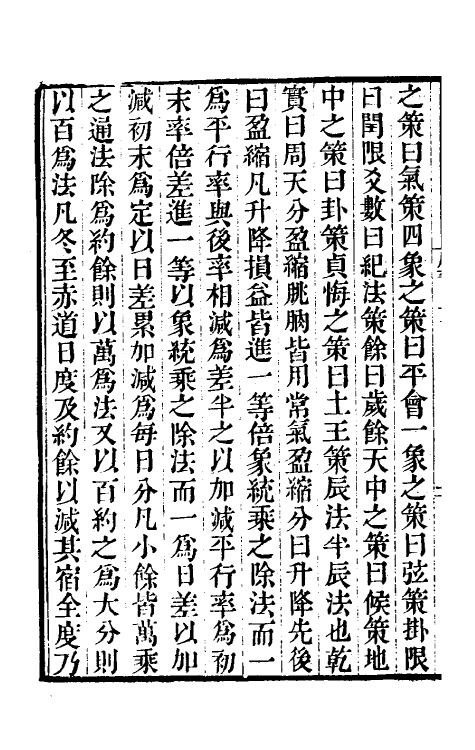 之策曰氣策四象之策曰平會一象之策曰弦策掛限
曰閏限爻數曰紀法策餘曰歲餘天中之策曰候策地
中之策曰卦策貞悔之策曰土王策辰法半辰法也乾
實曰周天分盈縮朓朒皆用常氣盈縮分曰升降先後
曰盈縮凡升降損益皆進一等倍象統乘之除法而一
爲平行率與後率相減爲差半之以加減平行率爲初
末率倍差進一等以象統乘之除法而一爲日差以加
減初末爲定以日差累加減爲每日分凡小餘皆萬乘
之通法除爲約餘則以萬爲法又以百約之爲大分則
以百爲法凡冬至赤道日度及約餘以減其宿全度乃